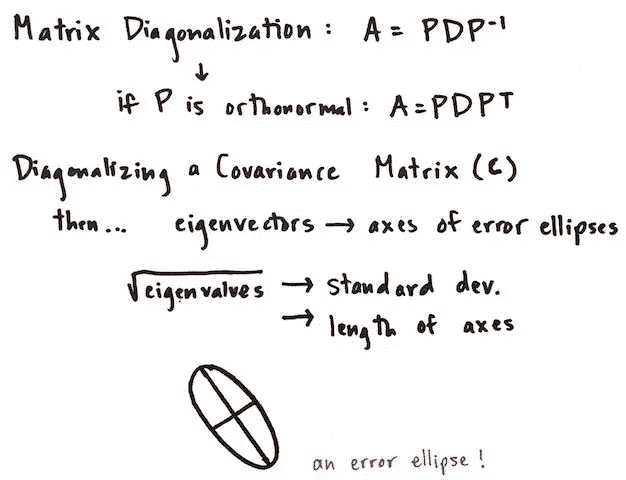 Matrix Diagonalization: A = PDP⁻¹
↓
if P is orthonormal: A=PDPᵀ
Diagonalizing a Covariance Matrix (C)
then... eigenvectors → axes of error ellipses
√eigenvalves → standard dev.
→ length of axes
an error ellipse!